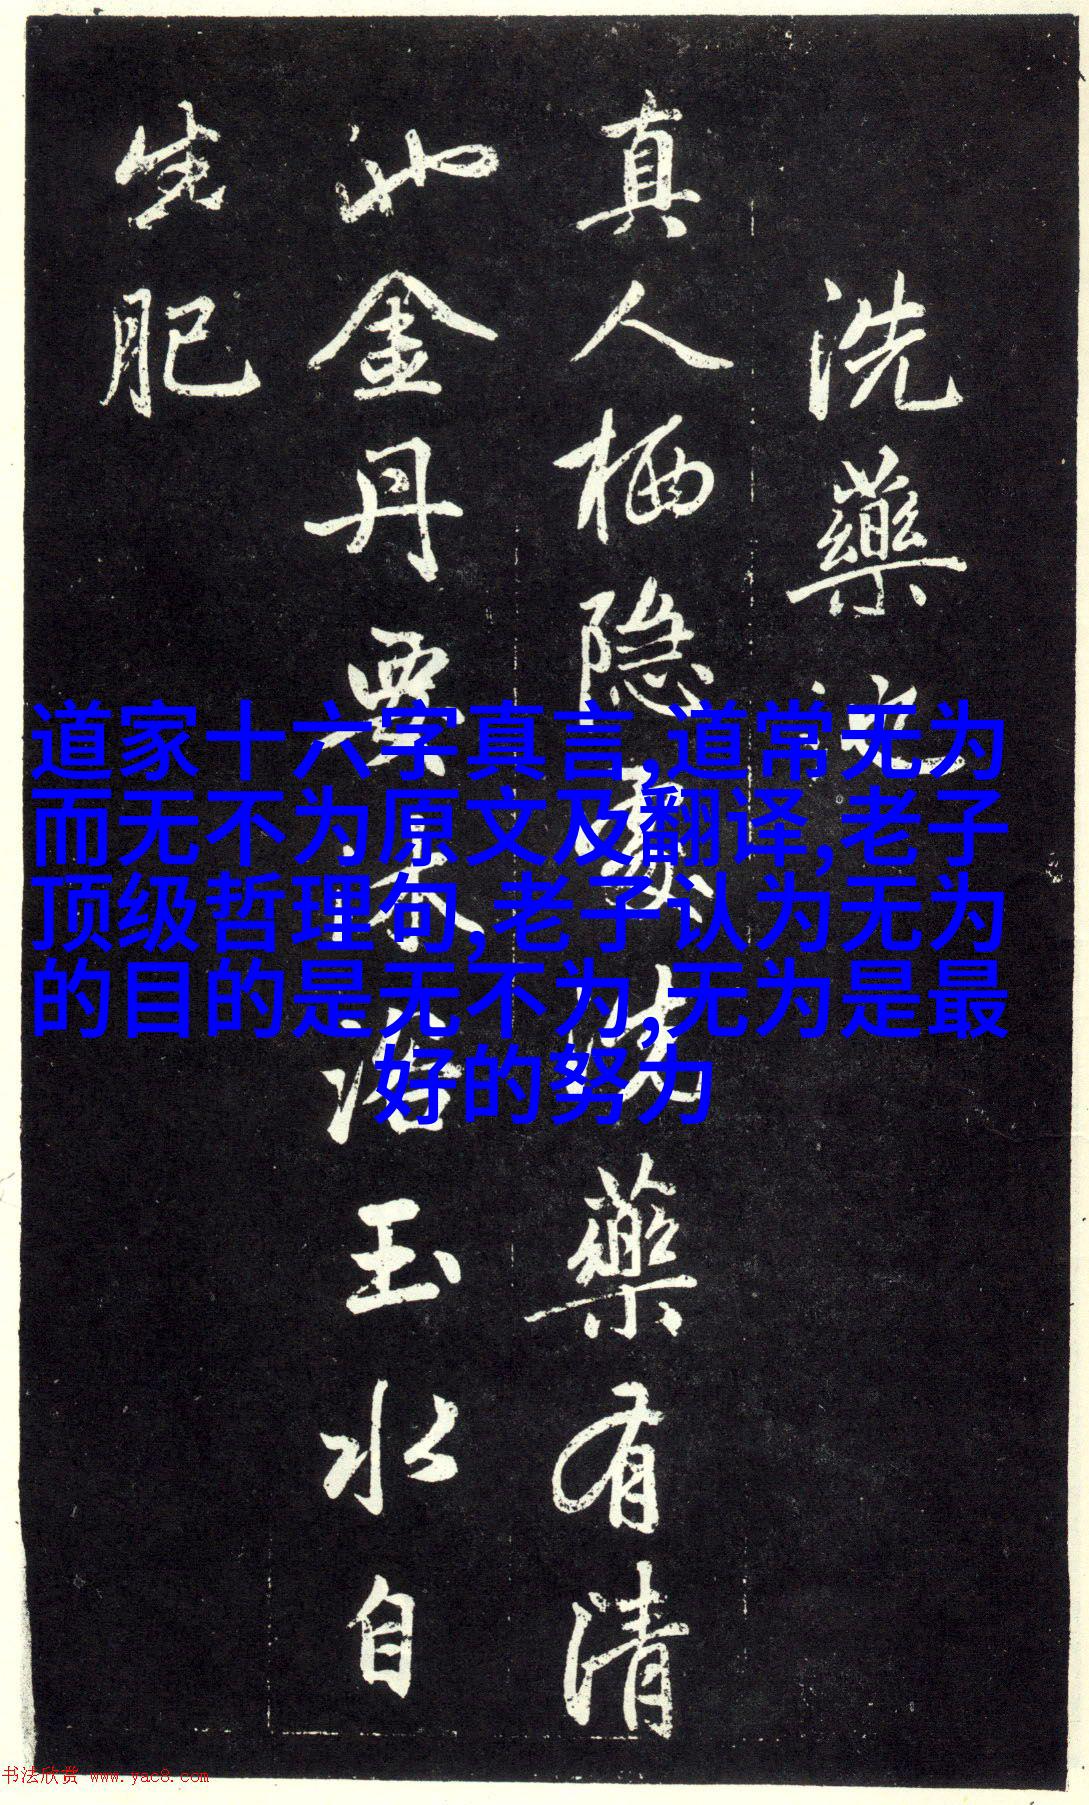 洗藥池
真人栖隐處洗藥有清
池金丹要沐浴玉水自
生肥
道家十六字真言,道常无为
而无不为原文及翻译,老子
顶级哲理句,老子认为无为
的目的是无不为,无为是最
好的努力
书法欣赏 www.yac8.com